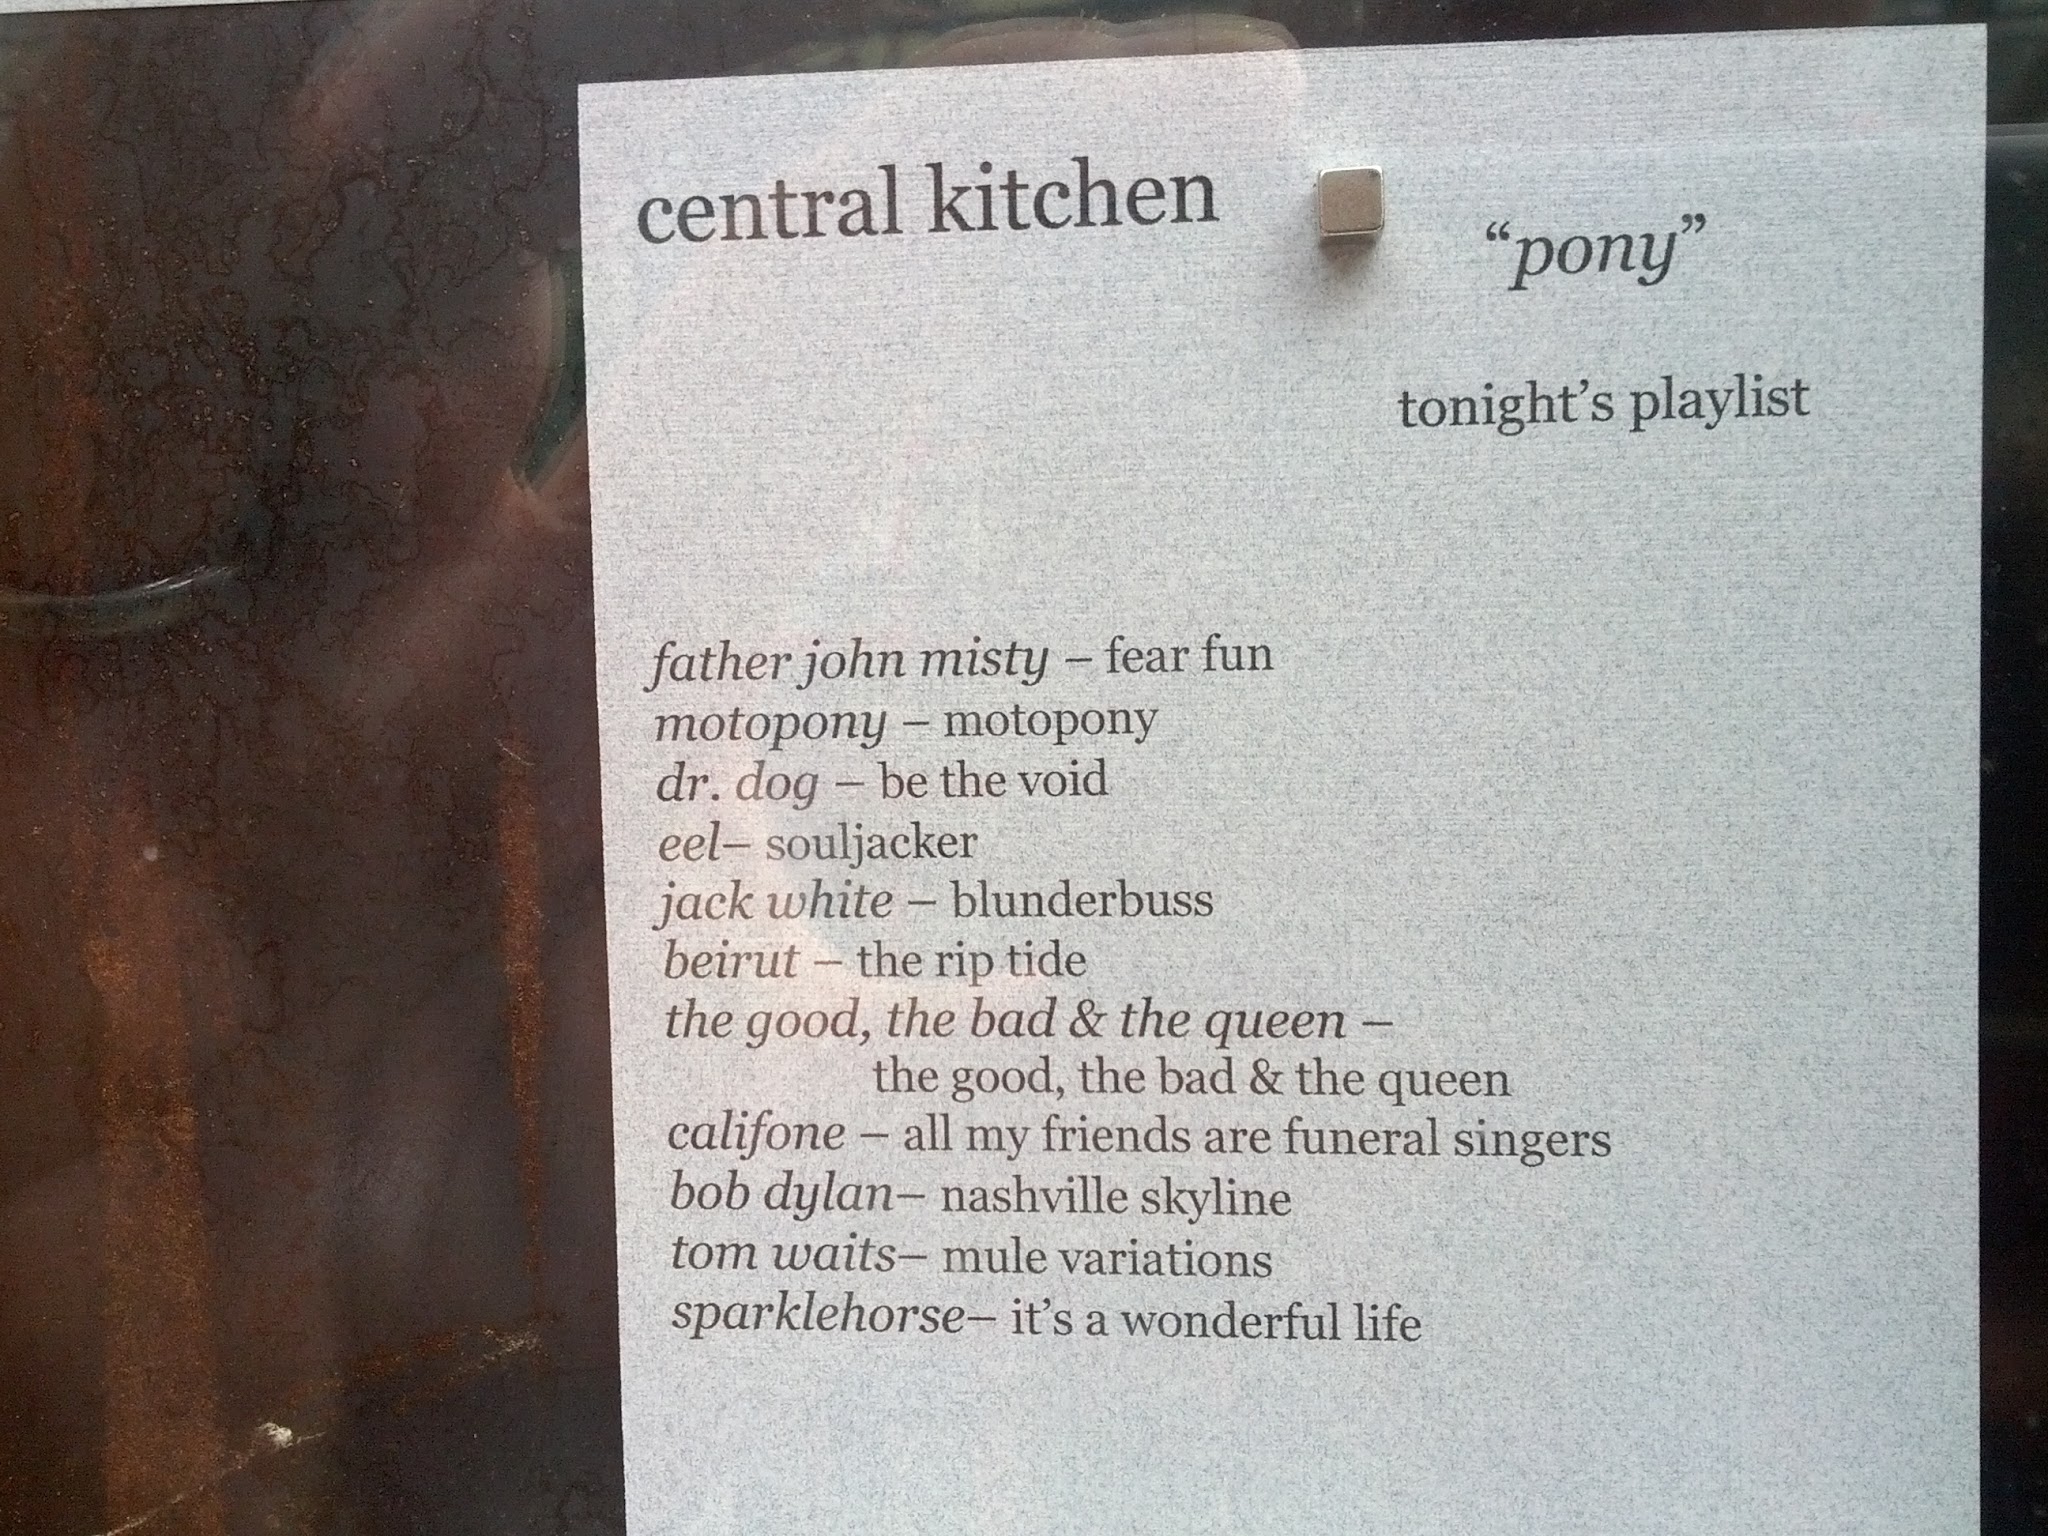 central kitchen
“pony”
tonight’s playlist
father john misty – fear fun
motopony – motopony
dr. dog – be the void
eel– souljacker
jack white – blunderbuss
beirut – the rip tide
the good, the bad & the queen –
the good, the bad & the queen
califone – all my friends are funeral singers
bob dylan– nashville skyline
tom waits– mule variations
sparklehorse– it’s a wonderful life